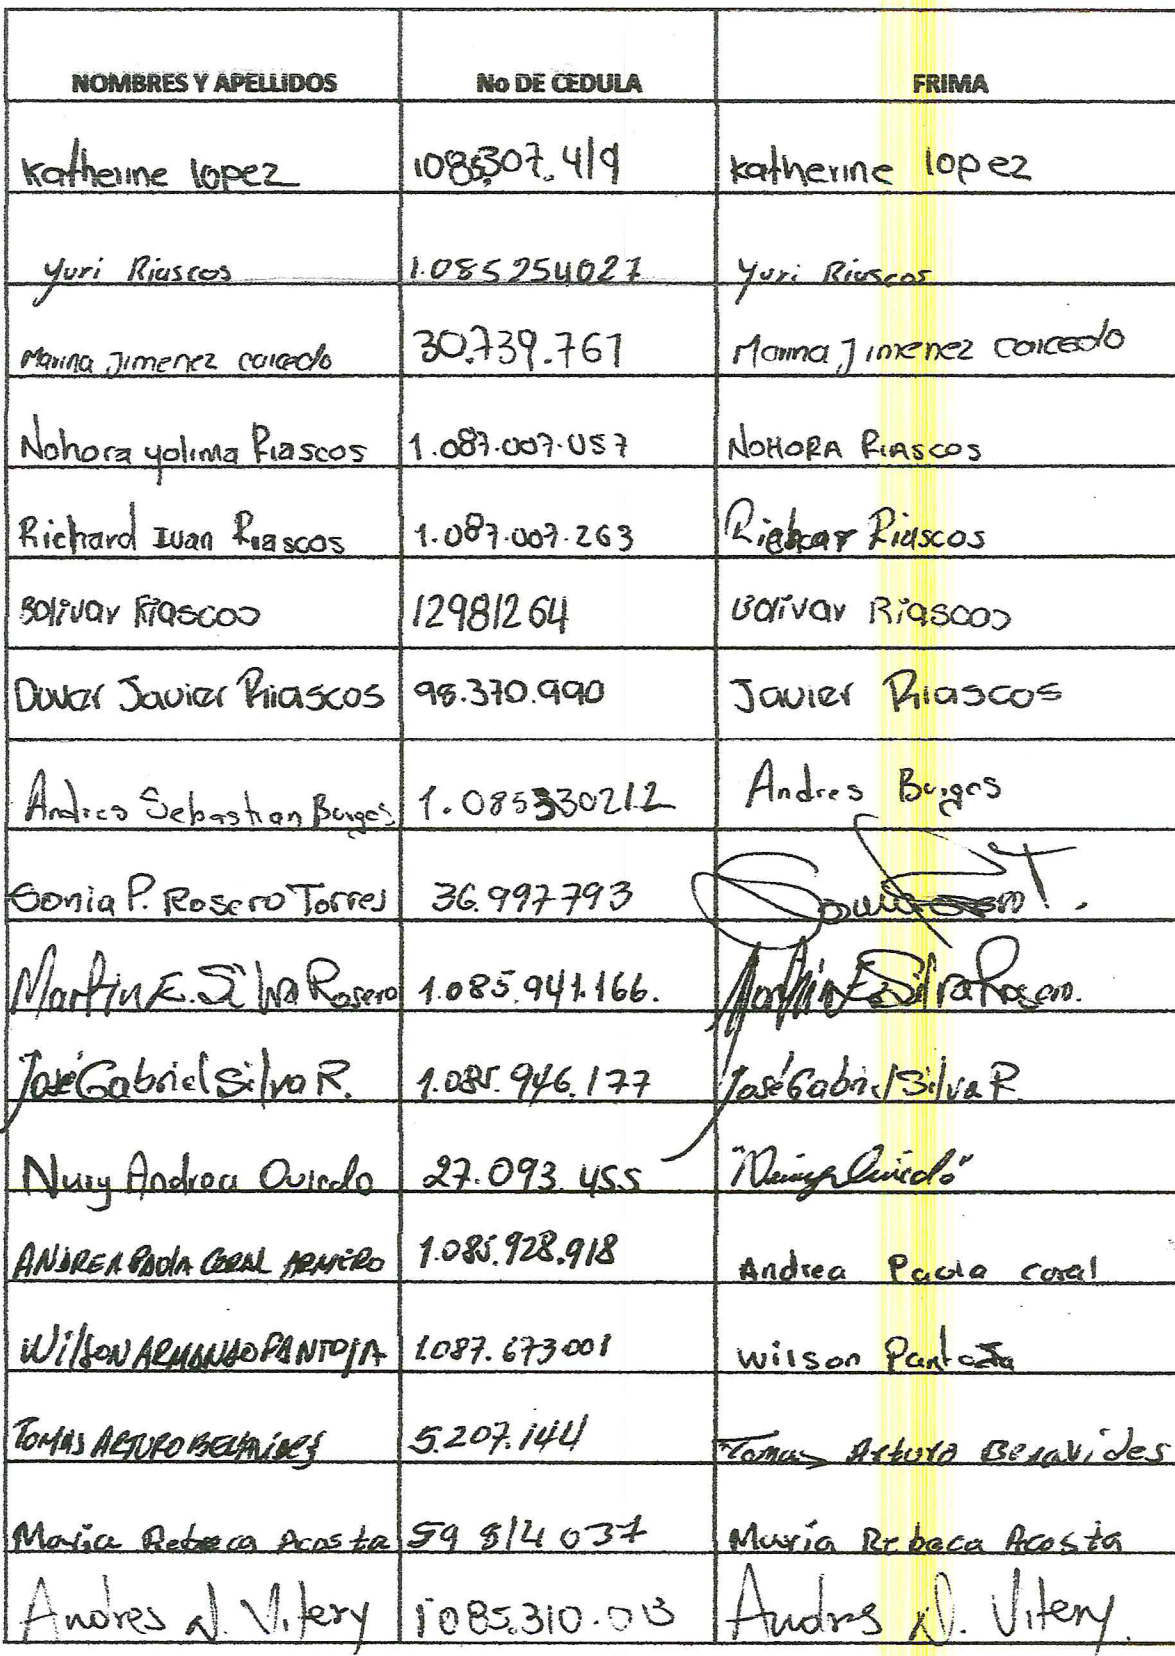 NOMBRES Y APELLIDOS No DE CEDULA FRIMA
Katherine lopez 1085307.419 Katherine lopez
Yuri Riascos 1.085254027 Yuri Riascos
Marina Jimenez caicedo 30.739.761 Marina Jimenez caicedo
Nohora yolima Riascos 1.087.007.057 NOHORA RIASCOS
Richard Ivan Riascos 1.087.007.263 Richar Riascos
Bolivar Riascos 12981264 Bolivar Riascos
Duver Javier Riascos 98.370.990 Javier Riascos
Andres Sebastian Burgos 1.085330212 Andres Burgos
Sonia P. Rosero Torres 36.997.793
Martin E. Silva Rosero 1.085.941.166. Martin E Silva Rosero.
José Gabriel Silva R. 1.085.946.177 José Gabriel Silva R
Nury Andrea Oviedo 27.093.455 "Nury Oviedo"
ANDREA PAOLA CORAL ARMERO 1.085.928.918 Andrea Paola coral
WilSON ARMANDO PANTOJA 1.087.673001 Wilson Pantoja
TOMAS ARTURO BENAVIDES 5.207.144 Tomas Arturo Benavides
Maria Rebeca Acosta 59 814 037 María Rebeca Acosta
Andres N. Vitery 1085.310.013 Andres N. Vitery.